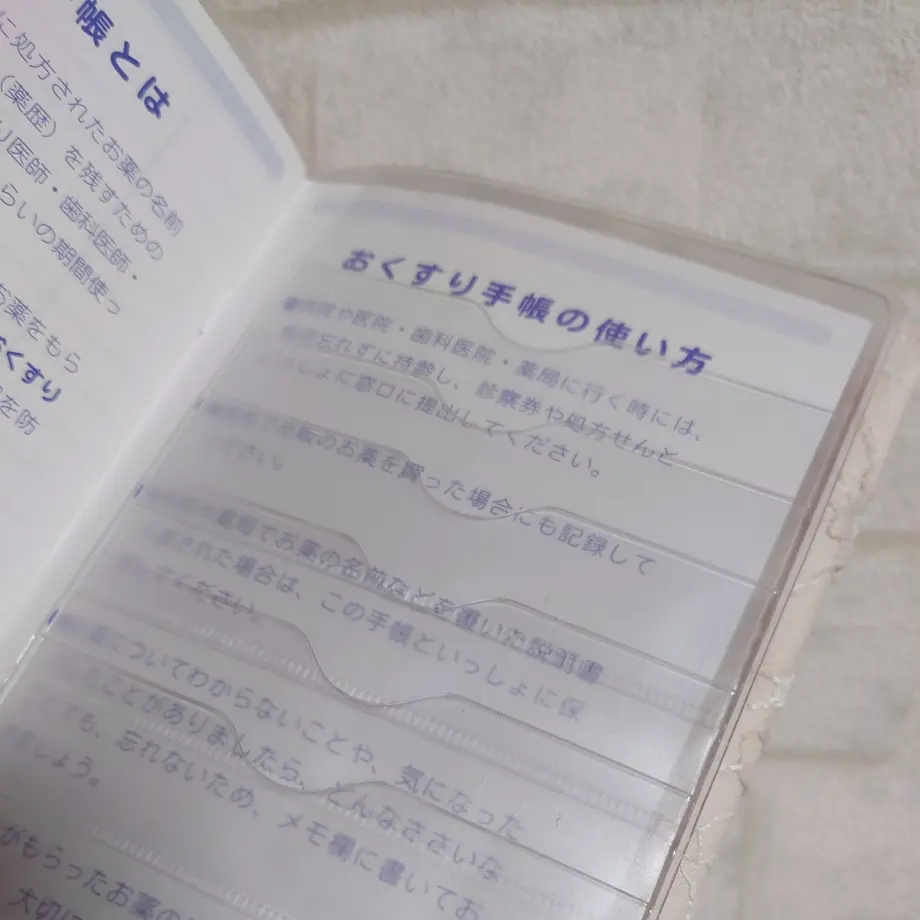 帳とは
に処方されたお薬の名前
（薬歴）を残すための
り医師・歯科医師・
らいの期間使っ
お薬をもら
おくすり
を防
おくすり手帳の使い方
●病院や医院・歯科医院・薬局に行く時には、
忘れずに持参し、診察券や処方せんと
しょに窓口に提出してください。
で市販のお薬を買った場合にも記録して
さい。
薬局でお薬の名前などを書いた説明書
された場合は、この手帳といっしょに保
ください。
についてわからないことや、気になった
ことがありましたら、どんなささいな
でも、忘れないため、メモ欄に書いてお
しょう。
がもらったお薬の
大切に